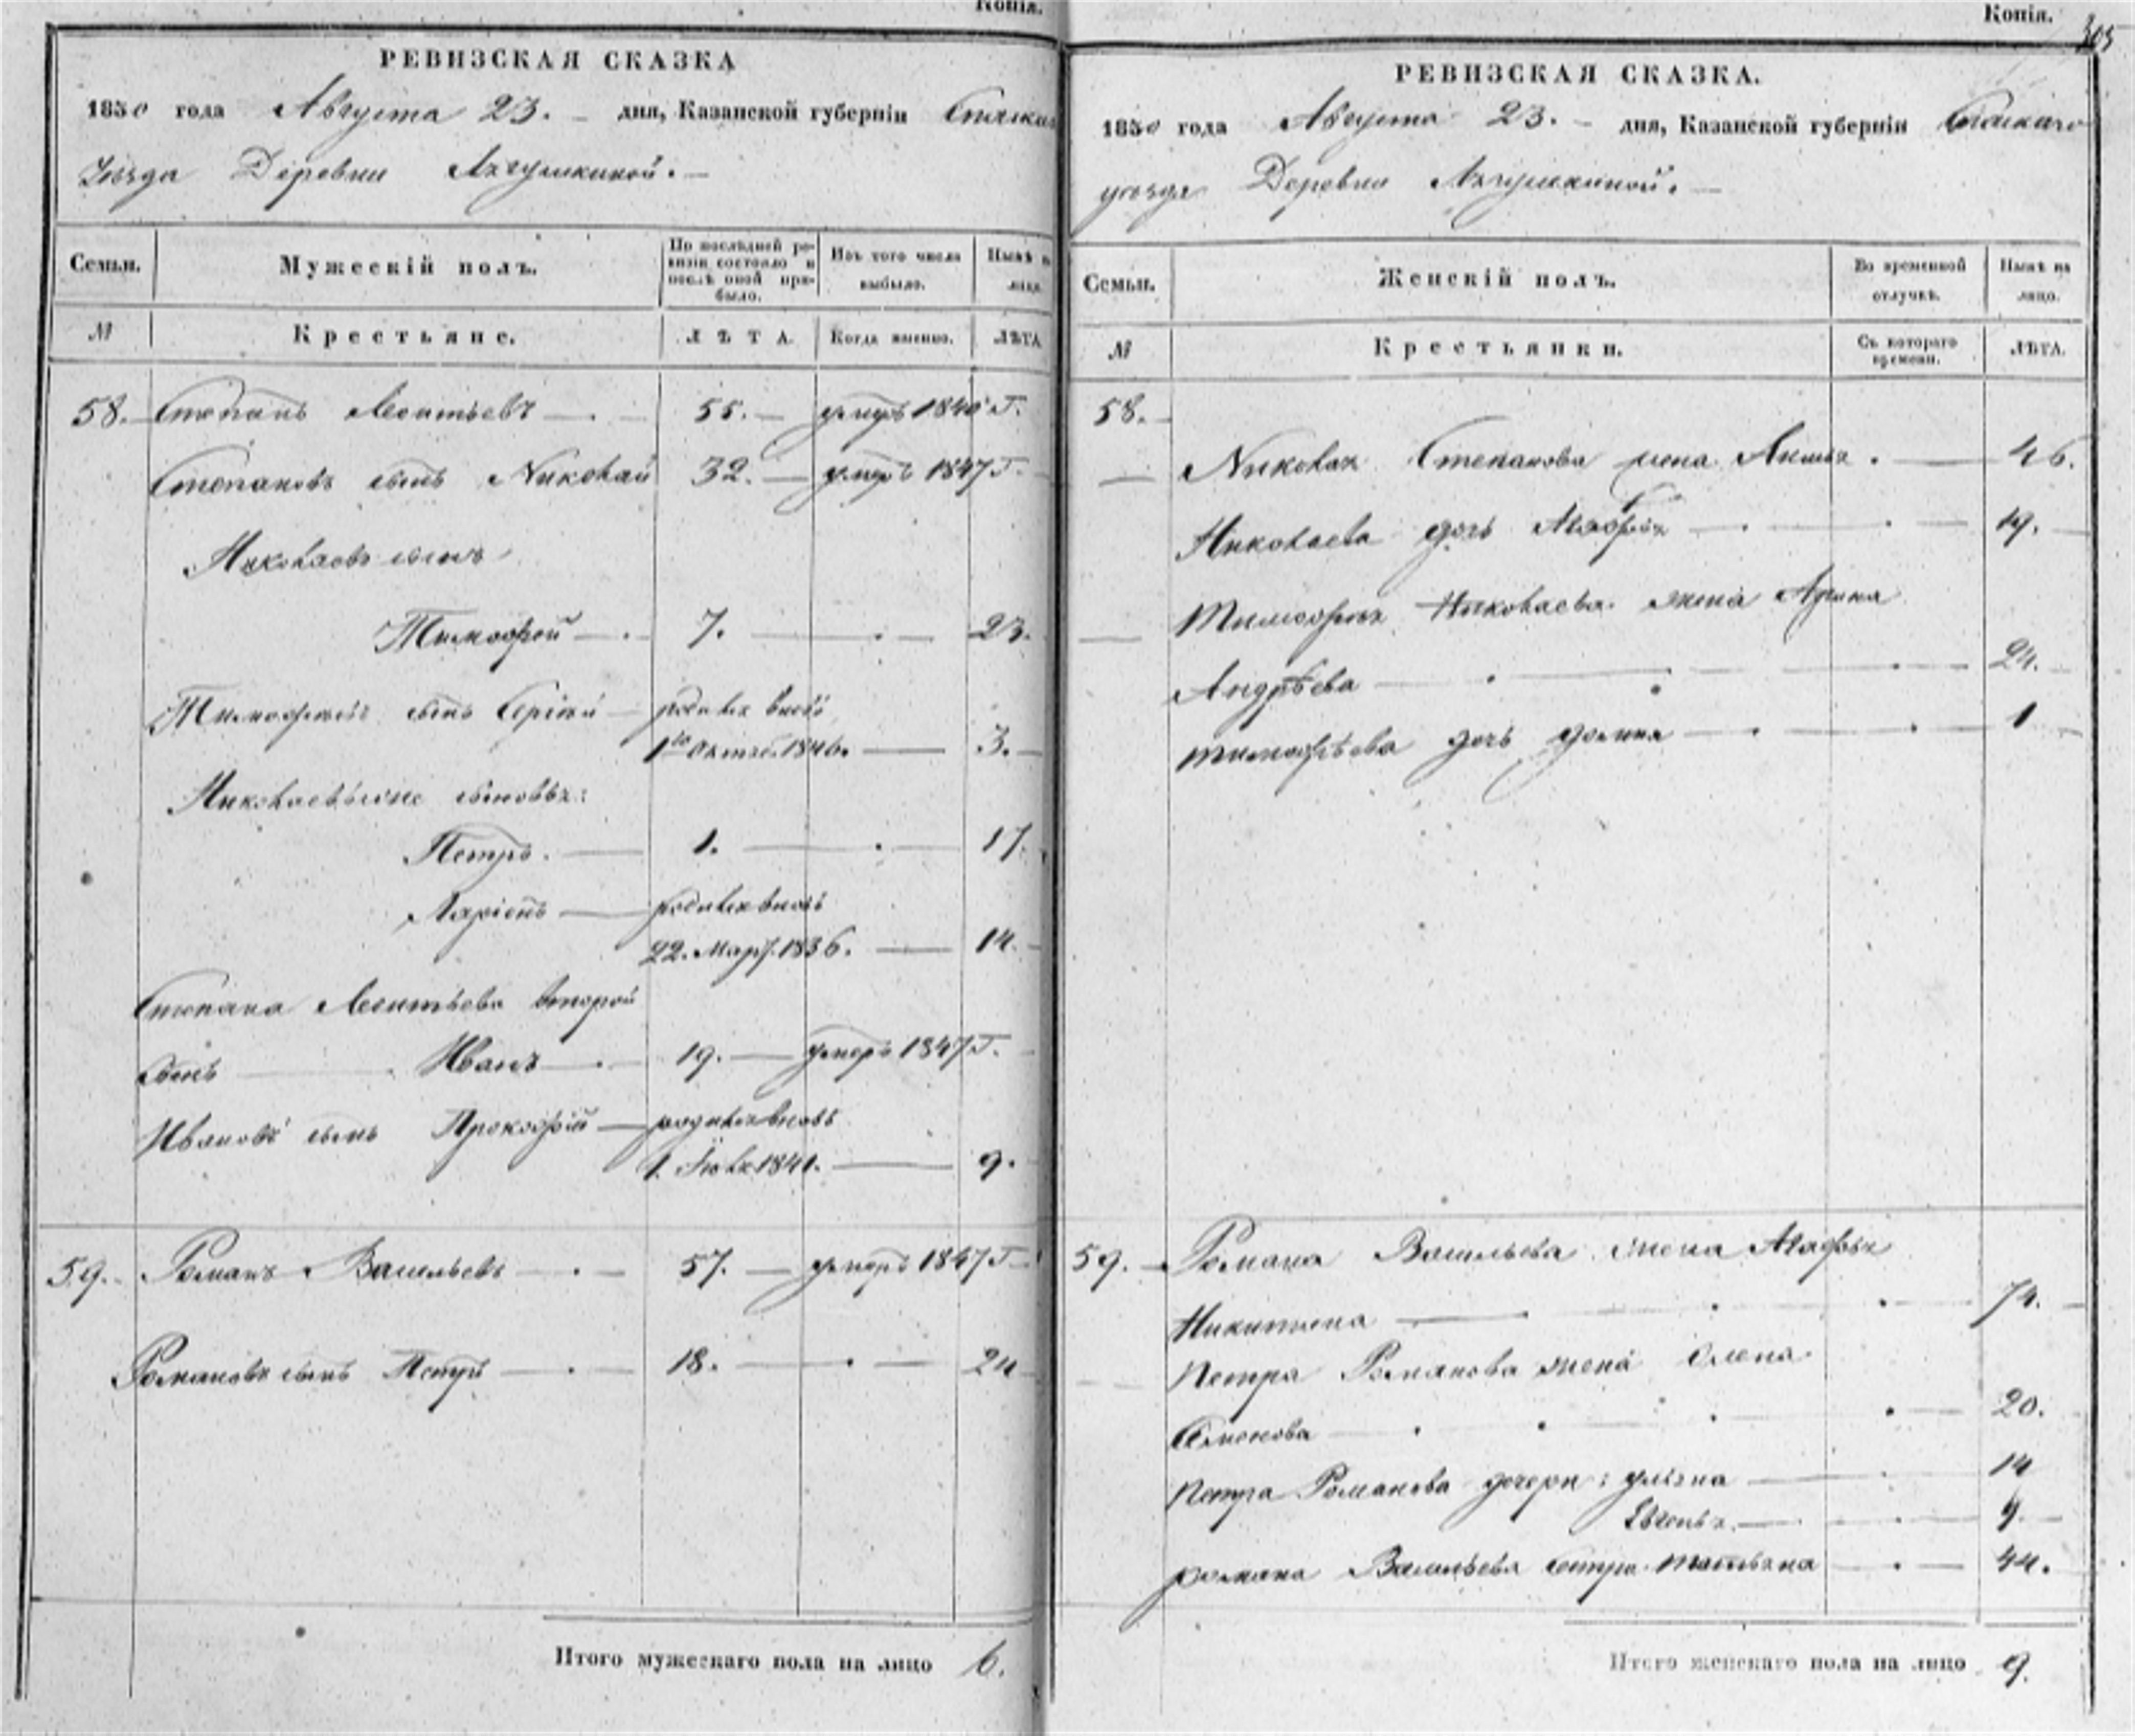 Копія.
РЕВИЗСКАЯ СКАЗКА
1850 года Августа 23. дня, Казанской губерніи
Уѣзда Деревни
Семьи.
Мужескій полъ.
По послѣдней ре-
визіи состояло и
послѣ оной при-
было.
Изъ того числа
выбыло.
Нынѣ на
лицо.
№
Крестьяне.
ЛѢТА.
Когда именно.
ЛѢТА
58. Степанъ Леонтьевъ 55. умеръ 1840 г.
Степановъ сынъ Николай 32. умеръ 1847 г.
Николаевъ сынъ
Тимофей 7. 23.
Тимофеевъ сынъ родился вновь
1го Октяб. 1846. 3.
Николаевы сыновья:
Петръ. 1. 17.
Ларіонъ родился вновь
22. Мар. 1836. 14.
Степана Леонтьева второй
сынъ Иванъ 19. умеръ 1847 г.
Ивановъ сынъ Прокофій родился вновь
1. Іюля 1841. 9.
59. Романъ Васильевъ 57. умеръ 1847 г.
Романовъ сынъ Петръ 18. 24
Итого мужескаго пола на лицо 6.
Копія.
305
РЕВИЗСКАЯ СКАЗКА.
1850 года Августа 23. дня, Казанской губерніи
уѣзда Деревни
Семьи.
Женскій полъ.
Во временной
отлучкѣ.
Нынѣ на
лицо.
№
Крестьянки.
Съ котораго
времени.
ЛѢТА.
58.
Николая Степанова жена 46.
Николаева дочь 19.
Тимофея Николаева жена Арина
Андрѣева 24.
Тимофѣева дочь 1
59. Романа Васильева жена Агафья
Никитина 74.
Петра Романова жена Олена
20.
Петра Романова дочери: Ульяна 14
Евгенья. 9.
Романа Васильева сестра Татьяна 44.
Итого женскаго пола на лицо 9.